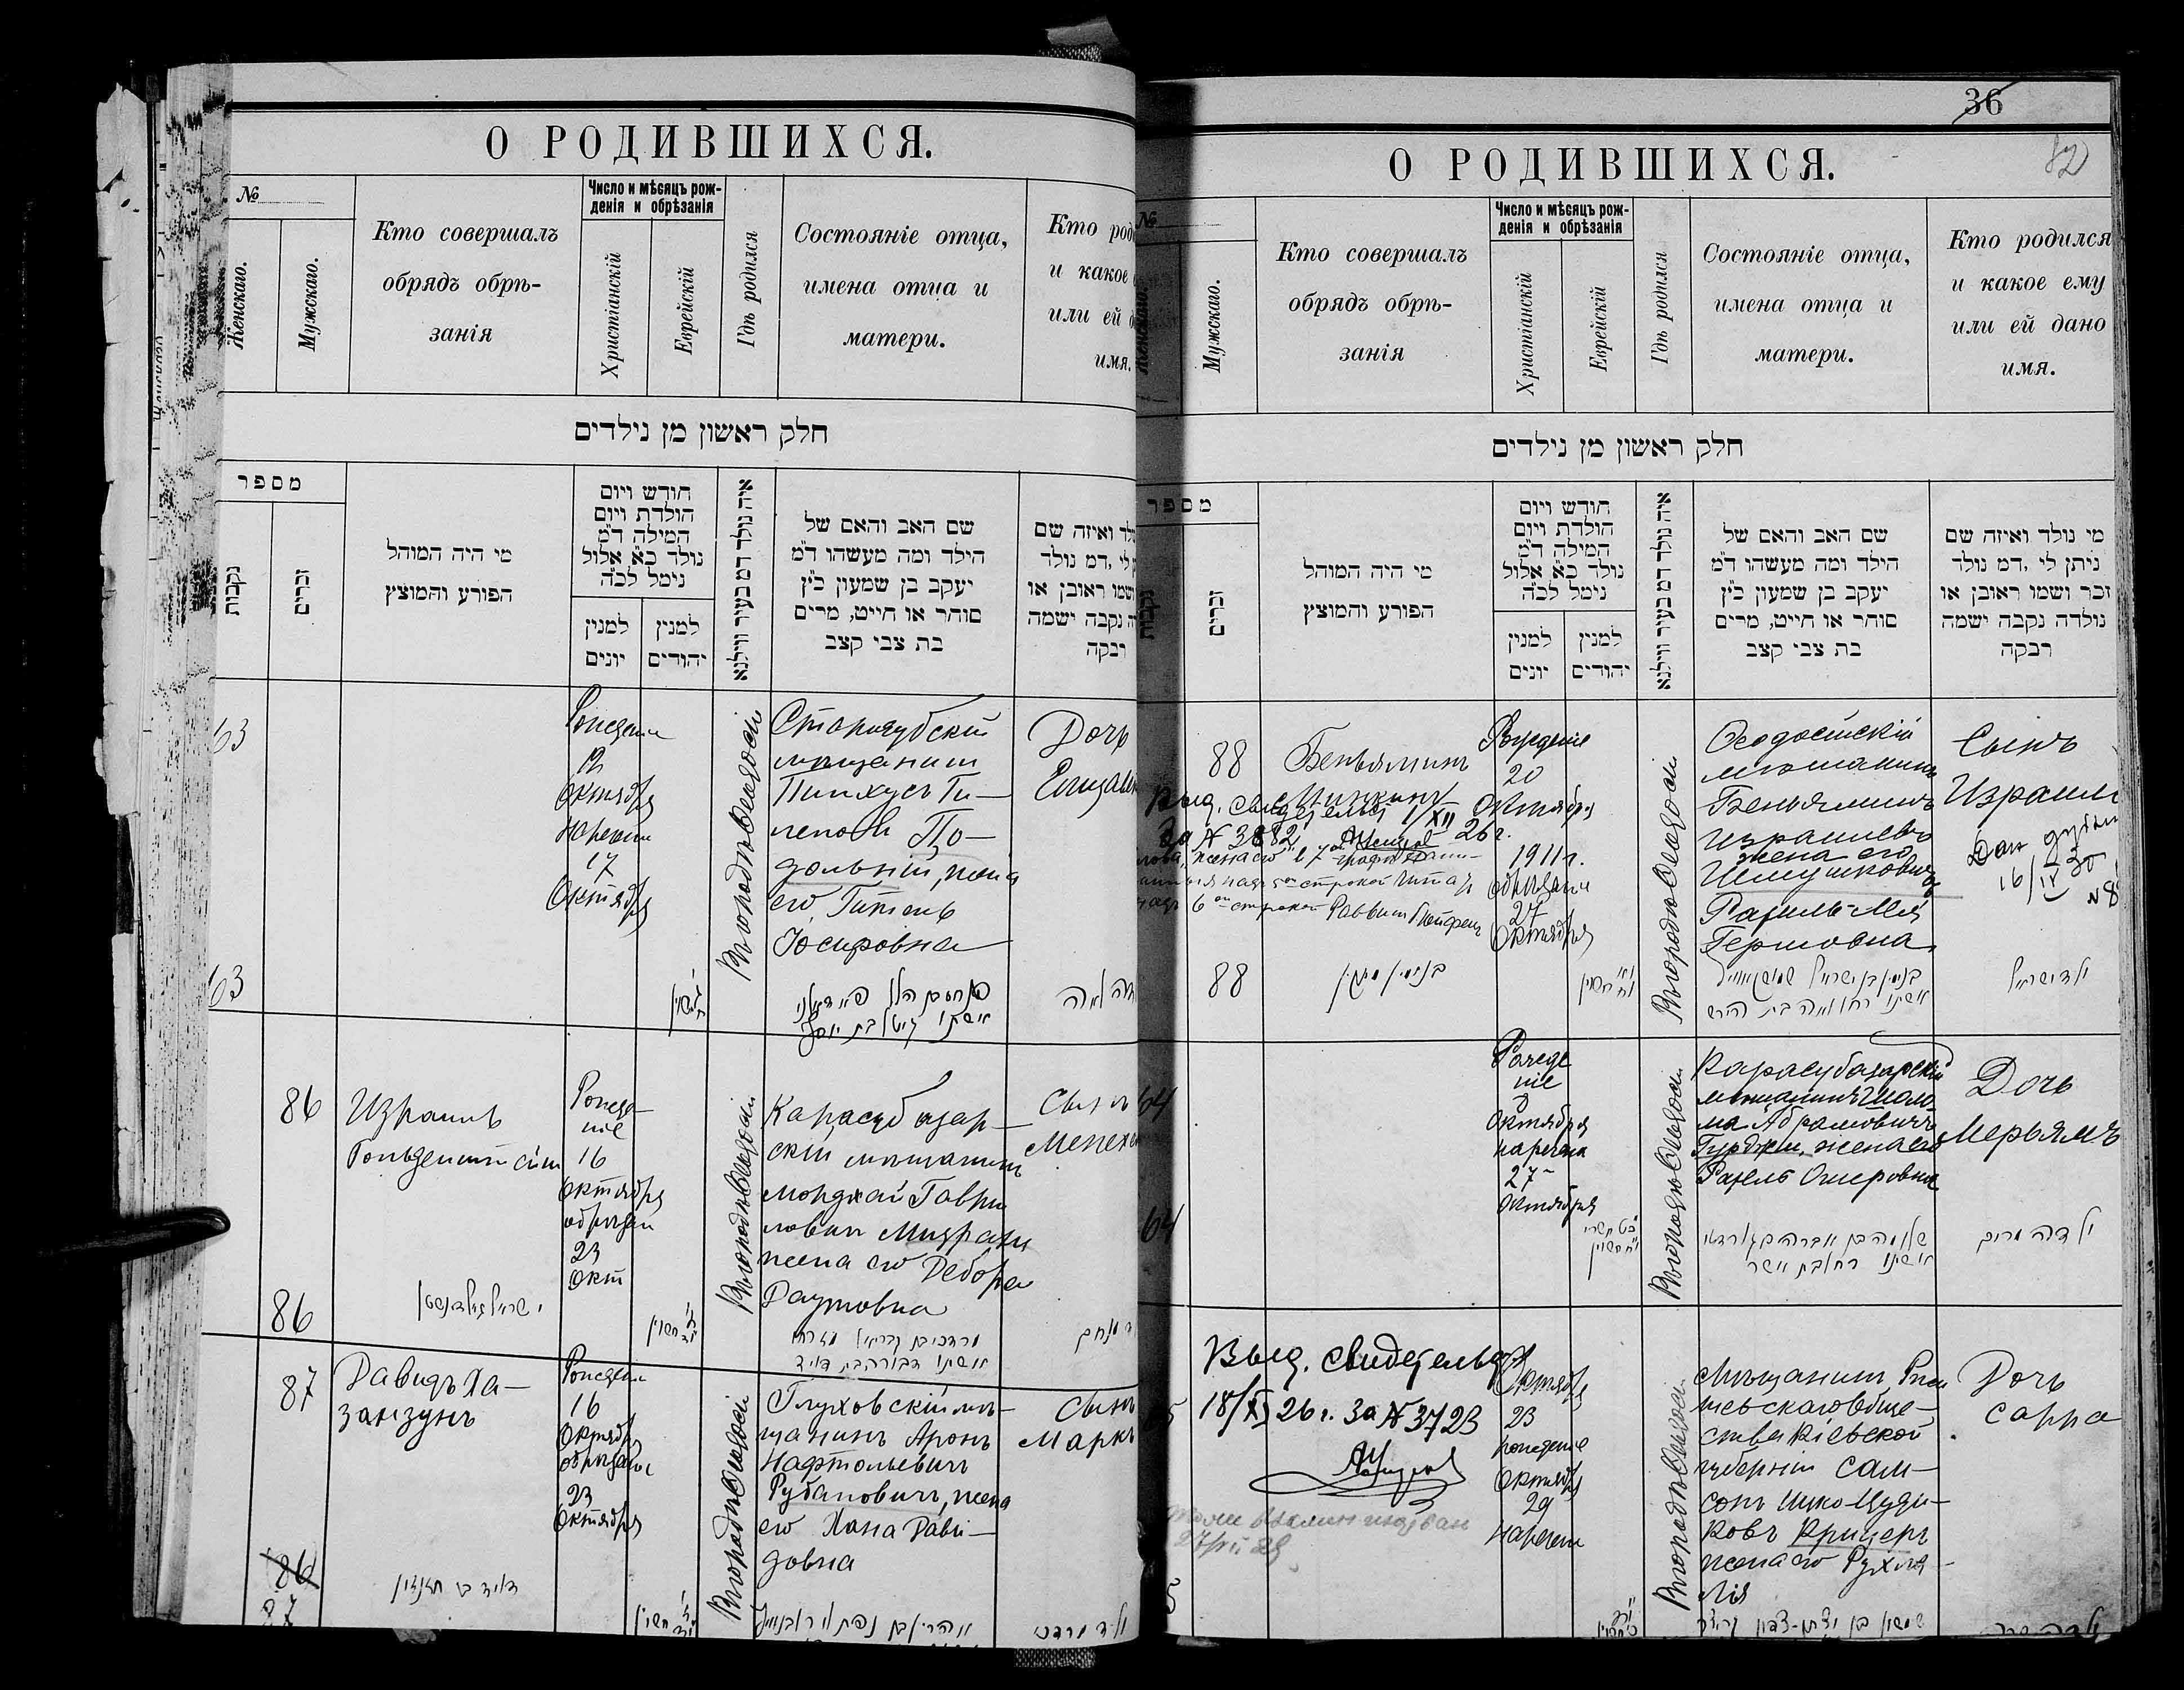 О РОДИВШИХСЯ.
№
Женскаго.
Мужскаго.
Кто совершалъ
обрядъ обрѣ-
занія
Число и мѣсяцъ рож-
денія и обрѣзанія
Христіанскій
Еврейскій
Гдѣ родился
Состояніе отца,
имена отца и
матери.
Кто
и какое
или ей
имя.
חלק ראשון מן נילדים
מספר
נקבות
זכרים
מי היה המוהל
הפורע והמוצץ
חודש ויום
הולדת ויום
המילה ד"מ
נולד כ"א אלול
נימל לכ"ה
למנין
יונים
למנין
יהודים
איה נולד דמ בעיר ווילנא
שם האב והאם של
הילד ומה מעשהו ד"מ
יעקב בן שמעון כ"ץ
סוהר או חייט, מרים
בת צבי קצב
ואיזה שם
לי ,דמ נולד
ושמו ראובן או
נקבה ישמה
רבקה
63
12
Октября
17
Октября
Въ городѣ Ѳеодосіи
Стародубскій
мѣщанинъ
Пинхусъ Ги-
По-
дольный, жена
его Гитель
Юсифовна
Дочь
63
86
Израиль
Гольденштейнъ
Рожде-
ніе
16
Октября
23
Окт
Въ городѣ Ѳеодосіи
Карасубазар-
скій мѣщанинъ
Мордхай Гаври
ловичъ Мизрахи
жена его Дебора
Даутовна
Сынъ
86
מרדכי בן גבריאל מזרחי
אשתו דבורה בת דוד
87
Давидъ Ха-
занзунъ
16
Октября
23
Октября
Въ городѣ Ѳеодосіи
Глуховскій мѣ-
щанинъ Аронъ
Нафтольевичъ
Рубановичъ, жена
его Хана Дави-
довна
Сынъ
Маркъ
86
87
36
82
О РОДИВШИХСЯ.
№
Мужскаго.
Кто совершалъ
обрядъ обрѣ-
занія
Число и мѣсяцъ рож-
денія и обрѣзанія
Христіанскій
Еврейскій
Гдѣ родился
Состояніе отца,
имена отца и
матери.
Кто родился
и какое ему
или ей дано
имя.
חלק ראשון מן נילדים
מספר
זכרים
מי היה המוהל
הפורע והמוצץ
חודש ויום
הולדת ויום
המילה ד"מ
נולד כ"א אלול
נימל לכ"ה
למנין
יונים
למנין
יהודים
איה נולד דמ בעיר ווילנא
שם האב והאם של
הילד ומה מעשהו ד"מ
יעקב בן שמעון כ"ץ
סוהר או חייט, מרים
בת צבי קצב
מי נולד ואיזה שם
ניתן לי ,דמ נולד
זכר ושמו ראובן או
נולדה נקבה ישמה
רבקה
88
Беньяминъ
Минкинъ
Выд. свидетельст 1/XII
26 г.
Рожденіе
20
Октября
1911 г.
27
Октября
Въ городѣ Ѳеодосіи
Ѳеодосійскій
мѣщанинъ
Беньяминъ
Израилевъ
жена его
Рахиль-Лея
Гершовна
Сынъ
Израиль
88
ילד ישראל
64
Рожде
ніе
Октября
наречена
27
Октября
Въ городѣ Ѳеодосіи
Карасубазарскій
мѣщанинъ Шоло-
ма Абрамовичъ
Гурджи, жена его
Рахель Ошеровна
Дочь
Мерьямъ
64
שלמה בן אברהם גורדזי
אשתו רחל בת אשר
ילדה מרים
Выд. свидетельст
18/XI 26 г. за № 3723
Октября
23
рожденіе
Октября
29
наречен
Въ городѣ Ѳеодосіи
Мѣщанинъ Ржи
щевскаго обще-
ства Кіевской
губерніи Сам-
сонъ Ицко-Цуди-
ковъ Крицеръ
жена его Рухля-
Лія
Дочь
Сарра